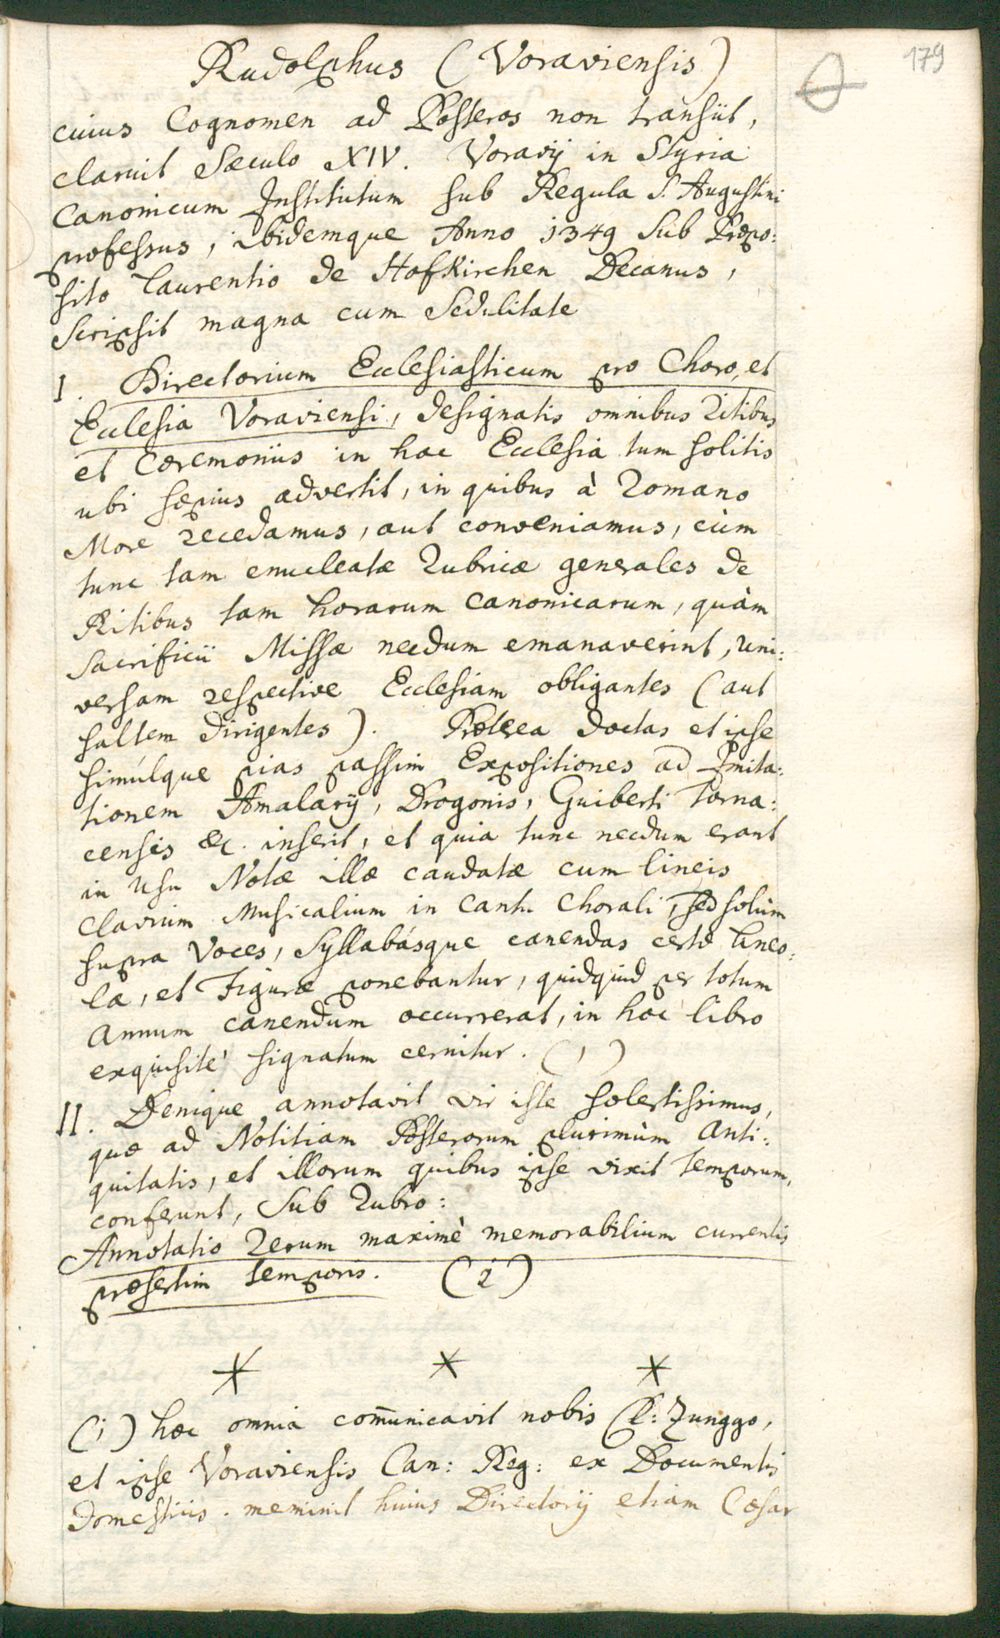 179
Rudolphus (Voraviensis)
cuius Cognomen ad Posteros non transiit,
claruit Sæculo XIV. Voravij in Styria
Canonicum Institutum sub Regula S. Augustini
professus, ibidemque Anno 1349 sub Præpo:
sito Laurentio de Hofkirchen Decanus,
scripsit magna cum Sedulitate
I. Directorium Ecclesiasticum pro Choro, et
Ecclesia Voraviensi, designatis omnibus Ritibus
et Cæremoniis in hac Ecclesia tum solitis
ubi sæpius advertit, in quibus à Romano
More recedamus, aut conveniamus, cùm
tunc tam enucleatæ Rubricæ generales de
Ritibus tam horarum Canonicarum, quàm
Sacrificii Missæ necdum emanaverint, uni:
versam respective Ecclesiam obligantes (aut
saltem dirigentes). Præterea doctas et ipse
simúlque pias passim Expositiones ad Imita:
tionem Amalarij, Drogonis, Guiberti Torna:
censis &c. inserit, et quia tunc necdum erant
in Usu Notæ illæ caudatæ cum lineis
Clavium Musicalium in Cantu Chorali, sed solùm
supra Voces, Syllabásque canendas certæ lineo:
læ, et Figuræ ponebantur, quidquid per totum
Annum canendum occurrerat, in hoc libro
exquisitè signatum cernitur. (1)
II. Denique annotavit vir iste solertissimus,
quæ ad Notitiam Posterorum plurimùm Anti:
quitatis, et illorum quibus ipse vixit Temporum,
conferunt, Sub Rubro:
Annotatio Rerum maximè memorabilium currentis
præsertim temporis. (2)
(1) hæc omnia com̄unicavit nobis Cl: Zunggo,
et ipse Voraviensis Can: Reg: ex Documentis
Domesticis. meminit huius Directorij etiam Cæsar